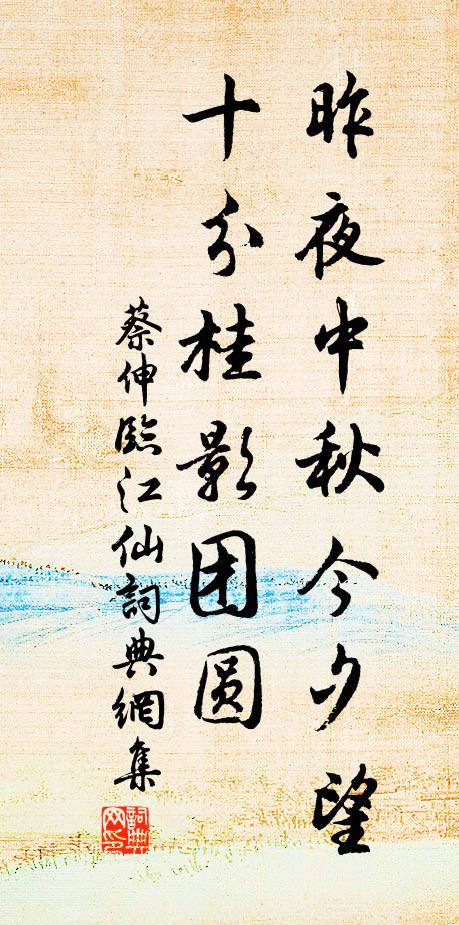 昨夜中秋今夕望
十分桂影团圆
蔡伸臨江仙詞典網集
詞典網